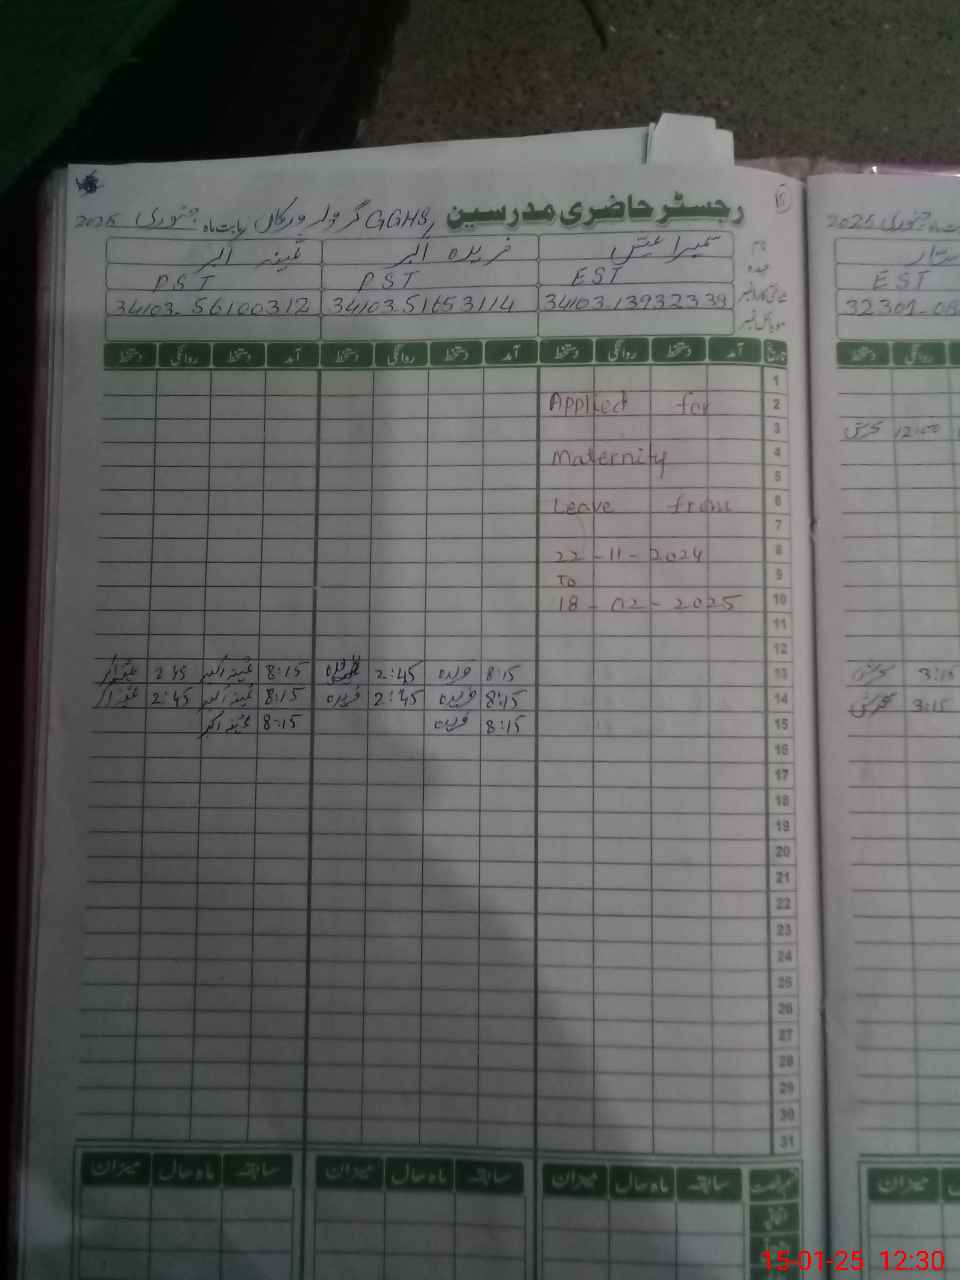 رجسٹر حاضری مدرسین GGHS بابت ماہ جنوری 2025
نام
سمیرا
فریدہ اکبر
ثمینہ اکبر
عہدہ
EST
PST
PST
34103-13932339
34103-51653114
34103-56100312
موبائل نمبر
تاریخ آمد دستخط روانگی دستخط آمد دستخط روانگی دستخط آمد دستخط روانگی دستخط
1
2 Applied for
3
4 Maternity
5
6 Leave from
7
8 22-11-2024
9 To
10 18-02-2025
11
12
13 8:15 فریدہ 2:45 8:15 ثمینہ اکبر 2:45
14 8:15 فریدہ 2:45 فریدہ 8:15 ثمینہ اکبر 2:45
15 8:15 فریدہ 8:15 ثمینہ اکبر
16
17
18
19
20
21
22
23
24
25
26
27
28
29
30
31
قسم رخصت سابقہ ماہ حال میزان سابقہ ماہ حال میزان سابقہ ماہ حال میزان
اتفاقیہ
جنوری 2025
EST
32301-08
روانگی دستخط
12:00
3:15
3:15
میزان
15-01-25 12:30